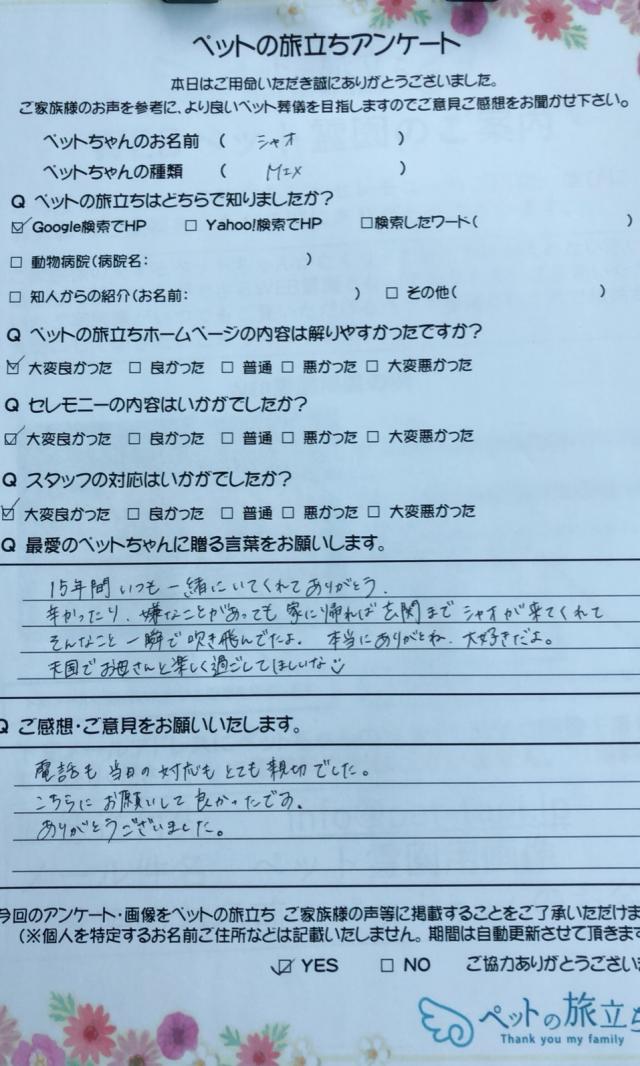 ペットの旅立ちアンケート
本日はご用命いただき誠にありがとうございました。
ご家族様のお声を参考に、より良いペット葬儀を目指しますのでご意見ご感想をお聞かせ下さい。
ペットちゃんのお名前 ( シャオ )
ペットちゃんの種類 ( MIX )
Q ペットの旅立ちはどちらで知りましたか?
☑ Google検索でHP □ Yahoo!検索でHP □検索したワード( )
□ 動物病院(病院名: )
□ 知人からの紹介(お名前: ) □ その他( )
Q ペットの旅立ちホームページの内容は解りやすかったですか?
☑ 大変良かった □ 良かった □ 普通 □ 悪かった □ 大変悪かった
Q セレモニーの内容はいかがでしたか?
☑ 大変良かった □ 良かった □ 普通 □ 悪かった □ 大変悪かった
Q スタッフの対応はいかがでしたか?
☑ 大変良かった □ 良かった □ 普通 □ 悪かった □ 大変悪かった
Q 最愛のペットちゃんに贈る言葉をお願いします。
15年間いつも一緒にいてくれてありがとう。
辛かったり、嫌なことがあっても家に帰れば玄関までシャオが来てくれて
そんなこと一瞬で吹き飛んでたよ。本当にありがとね。大好きだよ。
天国でお母さんと楽しく過ごしてほしいな
Q ご感想・ご意見をお願いいたします。
電話も当日の対応もとても親切でした。
こちらにお願いして良かったです。
ありがとうございました。
今回のアンケート・画像をペットの旅立ち ご家族様の声等に掲載することをご了承いただけま
(※個人を特定するお名前ご住所などは記載いたしません。期間は自動更新させて頂きます
☑ YES □ NO ご協力ありがとうござい
ペットの旅立ち
Thank you my family